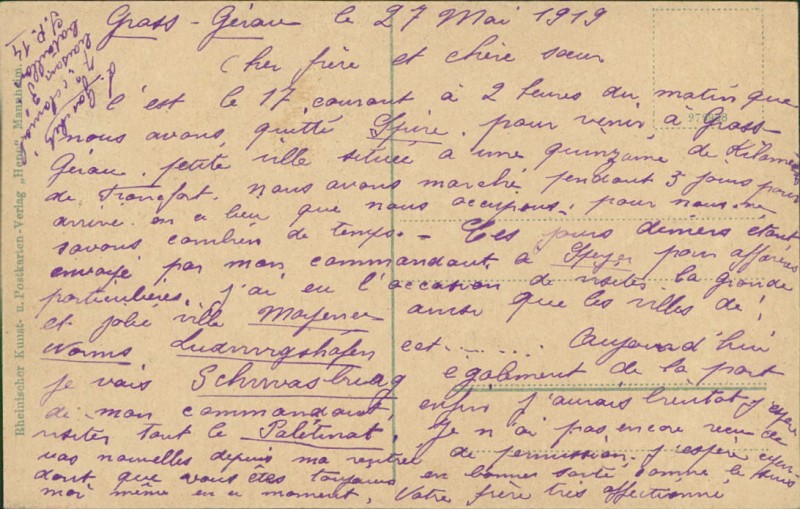 Grass-Gérau le 27 Mai 1919
Cher frère et chère sœur
C'est le 17 courant à 2 heures du matin que
nous avons quitté Spire, pour venir à Grass-
Gérau, petite ville située à une quinzaine de Kilomètres
de Francfort. nous avons marché pendant 3 jours pour
arrivé en ce lieu que nous occupons, pour nous ne
savons combien de temps. - Ces jours derniers étant
envoyé par mon commandant à Speyer pour affaires
particulières, j'ai eu l'occasion de visiter la grande
et jolie ville Mayence ainsi que les villes de!
Worms Ludwigshafen ect ....... Aujourd'hui
je vais Schwasburg également de la part
de mon commandant enfin j'aurais bientot j'espère
visiter tout le Palétinat. Je n'ai pas encore reçu de
vos nouvelles depuis ma rentrée de permission, j'espère
dant que vous êtes toujours en bonne santé comme le suis
moi même en ce moment, Votre frère très affectionné
Rheinischer Kunst- u. Postkarten-Verlag „Hepo“ Mannheim.